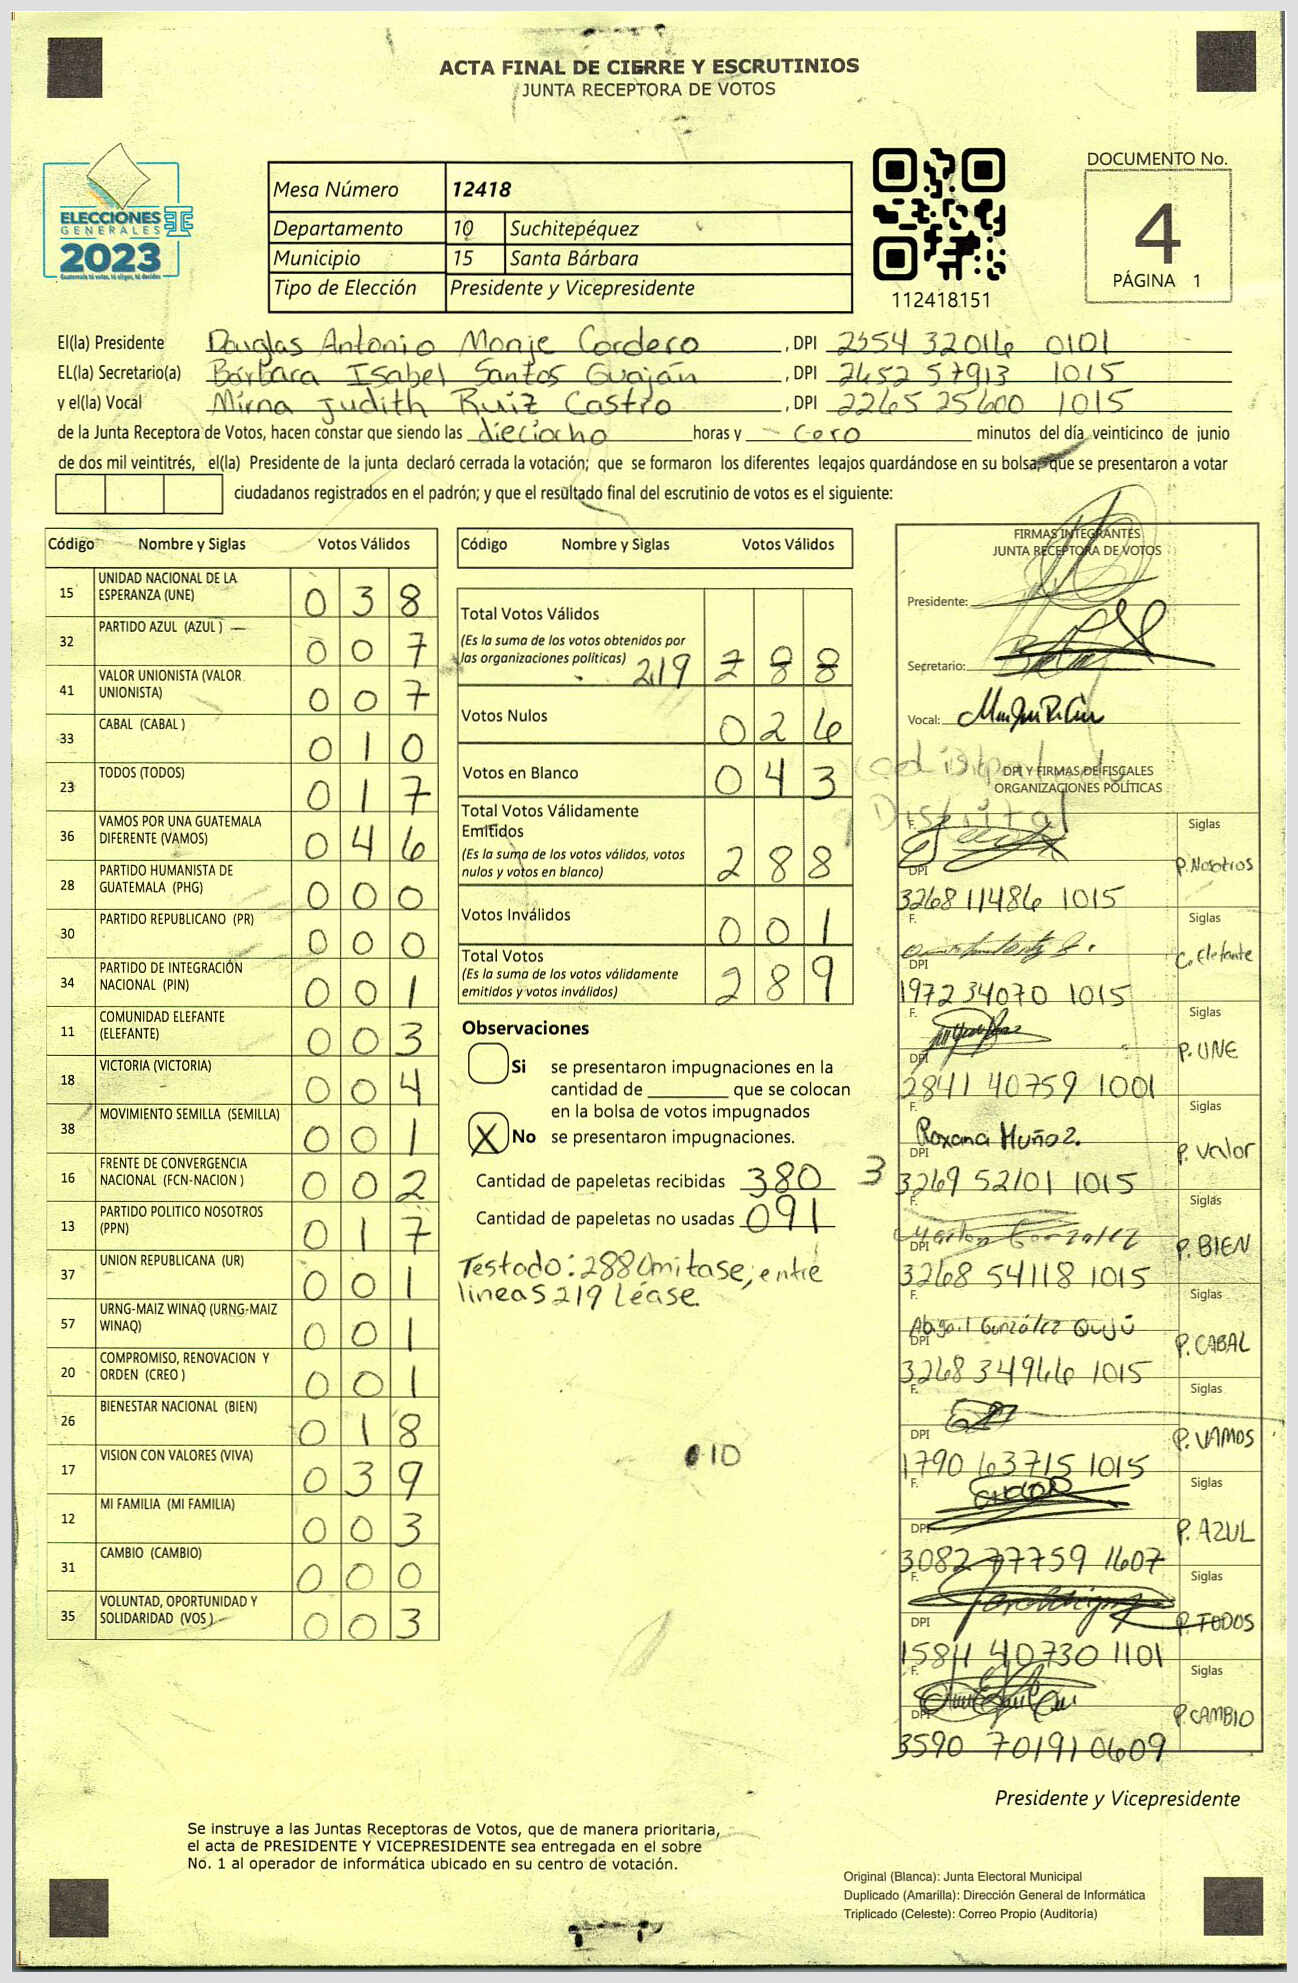 ACTA FINAL DE CIERRE Y ESCRUTINIOS
JUNTA RECEPTORA DE VOTOS
ELECCIONES
GENERALES
2023
Guatemala tú votas, tú eliges, tú decides
Mesa Número 12418
Departamento 10 Suchitepéquez
Municipio 15 Santa Bárbara
Tipo de Elección Presidente y Vicepresidente
112418151
DOCUMENTO No.
4
PÁGINA 1
El(la) Presidente Douglas Antonio Monje Cordero, DPI 2554 32016 0101
EL(la) Secretario(a) Bárbara Isabel Santos Guaján, DPI 2452 57913 1015
y el(la) Vocal Mirna Judith Ruiz Castro, DPI 2265 25600 1015
de la Junta Receptora de Votos, hacen constar que siendo las dieciocho horas y cero minutos del día veinticinco de junio
de dos mil veintitrés, el(la) Presidente de la junta declaró cerrada la votación; que se formaron los diferentes legajos guardándose en su bolsa, que se presentaron a votar
ciudadanos registrados en el padrón; y que el resultado final del escrutinio de votos es el siguiente:
Código Nombre y Siglas Votos Válidos
15 UNIDAD NACIONAL DE LA ESPERANZA (UNE) 0 3 8
32 PARTIDO AZUL (AZUL ) 0 0 7
41 VALOR UNIONISTA (VALOR UNIONISTA) 0 0 7
33 CABAL (CABAL ) 0 1 0
23 TODOS (TODOS) 0 1 7
36 VAMOS POR UNA GUATEMALA DIFERENTE (VAMOS) 0 4 6
28 PARTIDO HUMANISTA DE GUATEMALA (PHG) 0 0 0
30 PARTIDO REPUBLICANO (PR) 0 0 0
34 PARTIDO DE INTEGRACIÓN NACIONAL (PIN) 0 0 1
11 COMUNIDAD ELEFANTE (ELEFANTE) 0 0 3
18 VICTORIA (VICTORIA) 0 0 4
38 MOVIMIENTO SEMILLA (SEMILLA) 0 0 1
16 FRENTE DE CONVERGENCIA NACIONAL (FCN-NACION ) 0 0 2
13 PARTIDO POLITICO NOSOTROS (PPN) 0 1 7
37 UNION REPUBLICANA (UR) 0 0 1
57 URNG-MAIZ WINAQ (URNG-MAIZ WINAQ) 0 0 1
20 COMPROMISO, RENOVACION Y ORDEN (CREO ) 0 0 1
26 BIENESTAR NACIONAL (BIEN) 0 1 8
17 VISION CON VALORES (VIVA) 0 3 9
12 MI FAMILIA (MI FAMILIA) 0 0 3
31 CAMBIO (CAMBIO) 0 0 0
35 VOLUNTAD, OPORTUNIDAD Y SOLIDARIDAD (VOS ) 0 0 3
Código Nombre y Siglas Votos Válidos
Total Votos Válidos
(Es la suma de los votos obtenidos por
las organizaciones políticas) 219 2 8 8
Votos Nulos 0 2 6
Votos en Blanco 0 4 3
Total Votos Válidamente
Emitidos
(Es la suma de los votos válidos, votos
nulos y votos en blanco) 2 8 8
Votos Inválidos 0 0 1
Total Votos
(Es la suma de los votos válidamente
emitidos y votos inválidos) 2 8 9
Observaciones
Si se presentaron impugnaciones en la
cantidad de ________ que se colocan
en la bolsa de votos impugnados
X No se presentaron impugnaciones.
Cantidad de papeletas recibidas 380
Cantidad de papeletas no usadas 091
Testado: 288 Omitase, entre
lineas 219 Léase.
10
FIRMAS INTEGRANTES
JUNTA RECEPTORA DE VOTOS
Presidente:
Secretario:
Vocal:
DPI Y FIRMAS DE FISCALES
ORGANIZACIONES POLÍTICAS
Distrital
F. Siglas
DPI P. Nosotros
3268 11486 1015
F. Siglas
DPI C. Elefante
1972 34070 1015
F. Siglas
DPI P. UNE
2841 40759 1001
F. Siglas
Roxana Muñoz.
DPI P. Valor
3 3269 52101 1015
F. Siglas
Marlon Gonzalez
DPI P. BIEN
3268 54118 1015
F. Siglas
Abigail González Quijú
DPI P. CABAL
3268 34966 1015
F. Siglas
DPI P. VAMOS
1790 63715 1015
F. Siglas
DPI P. AZUL
3082 77759 1607
F. Siglas
DPI P. TODOS
1584 40730 1101
F. Siglas
DPI P. CAMBIO
3590 70191 0609
Presidente y Vicepresidente
Se instruye a las Juntas Receptoras de Votos, que de manera prioritaria,
el acta de PRESIDENTE Y VICEPRESIDENTE sea entregada en el sobre
No. 1 al operador de informática ubicado en su centro de votación.
Original (Blanca): Junta Electoral Municipal
Duplicado (Amarilla): Dirección General de Informática
Triplicado (Celeste): Correo Propio (Auditoría)